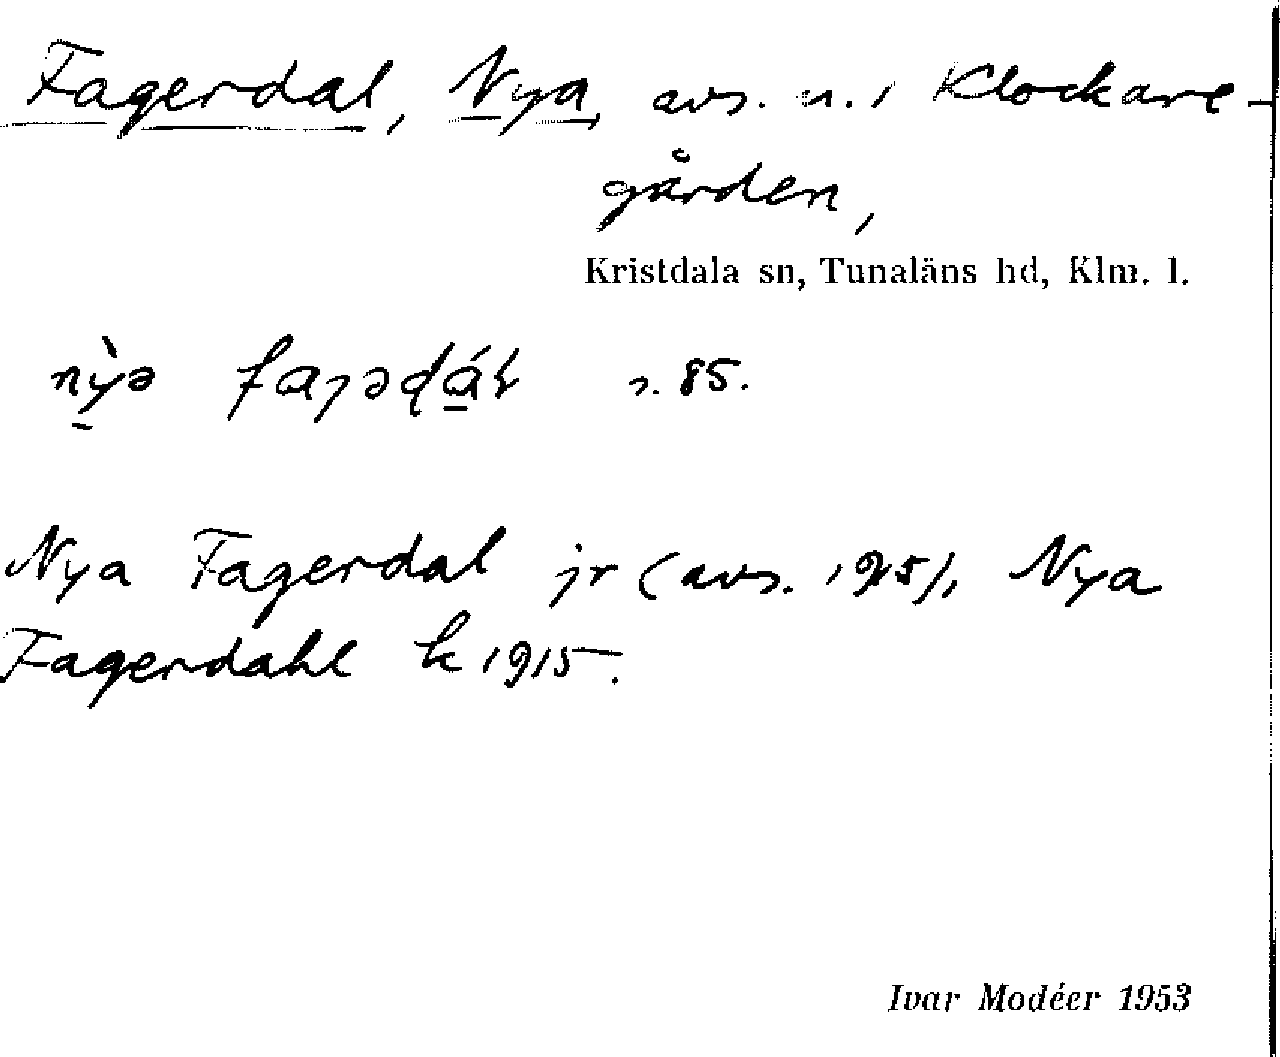 Fagerdal, Nya, avs. u. i Klockare-
gården,
Kristdala sn, Tunaläns hd, Klm. l.
nỳə faɡədál s. 85.
Nya Fagerdal jr (avs. 1925), Nya
Fagerdahl k 1915.
Ivar Modéer 1953